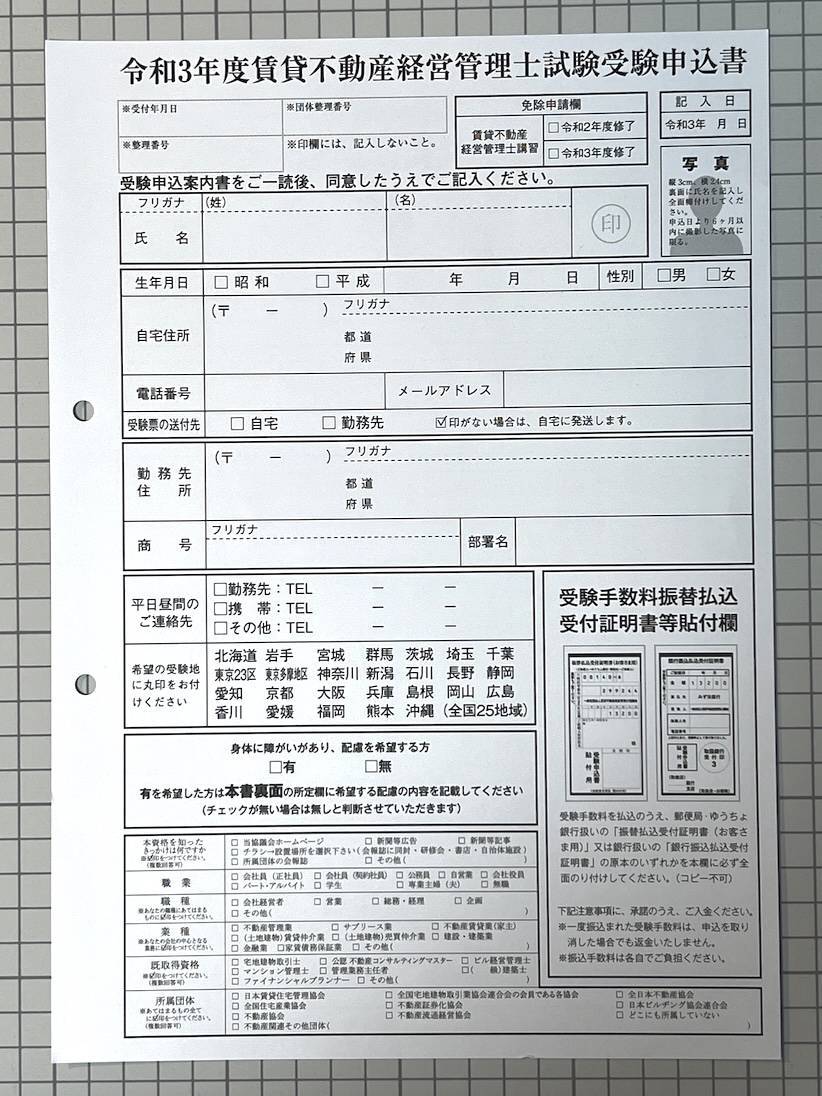 令和3年度賃貸不動産経営管理士試験受験申込書
※受付年月日
※団体整理番号
※整理番号
※印欄には、記入しないこと。
免除申請欄
賃貸不動産
経営管理士講習
□令和2年度修了
□令和3年度修了
記 入 日
令和3年 月 日
写 真
縦3cm、横2.4cm
裏面に氏名を記入し
全面糊付けしてくだ
さい。
申込日より6ヶ月以
内に撮影した写真に
限る。
受験申込案内書をご一読後、同意したうえでご記入ください。
フリガナ (姓) (名)
氏 名 印
生年月日 □昭和 □平成 年 月 日 性別 □男 □女
自宅住所 (〒 － ) フリガナ
都 道
府 県
電話番号 メールアドレス
受験票の送付先 □自宅 □勤務先 ☑印がない場合は、自宅に発送します。
勤 務 先
住 所
(〒 － ) フリガナ
都 道
府 県
商 号 フリガナ 部署名
平日昼間の
ご連絡先
□勤務先：TEL － －
□携 帯：TEL － －
□その他：TEL － －
希望の受験地
に丸印をお付
けください
北海道 岩手 宮城 群馬 茨城 埼玉 千葉
東京23区 東京多摩地区 神奈川 新潟 石川 長野 静岡
愛知 京都 大阪 兵庫 島根 岡山 広島
香川 愛媛 福岡 熊本 沖縄 (全国25地域)
身体に障がいがあり、配慮を希望する方
□有 □無
有を希望した方は本書裏面の所定欄に希望する配慮の内容を記載してください
(チェックが無い場合は無しと判断させていただきます)
受験手数料振替払込
受付証明書等貼付欄
振替払込受付証明書(お客さま用)
00140=6
299264
13200
受験申込書
貼付用
銀行振込払込受付証明書
13200
みずほ銀行
受験申込書
貼付用
取扱銀行
受付印
3
受験手数料を払込のうえ、郵便局･ゆうちょ
銀行扱いの「振替払込受付証明書（お客さ
ま用)」又は銀行扱いの「銀行振込払込受付
証明書」の原本のいずれかを本欄に必ず全
面のり付けしてください。（コピー不可）
下記注意事項に、承諾のうえ、ご入金ください。
※一度振込まれた受験手数料は、申込を取り
消した場合でも返金いたしません。
※振込手数料は各自でご負担ください。
本資格を知った
きっかけは何ですか
※☑印をつけてください。
(複数回答可)
□ 当協議会ホームページ □ 新聞等広告 □ 新聞等記事
□ チラシ→設置場所を選択下さい(会報誌に同封・研修会・書店・自治体施設)
□ 所属団体の会報誌 □ その他( )
職 業
□ 会社員（正社員） □ 会社員（契約社員） □ 公務員 □ 自営業 □ 会社役員
□ パート･アルバイト □ 学生 □ 専業主婦（夫） □ 無職
職 種
※あなたの職種にあてはまる
ものに☑印をつけてください。
□ 会社経営者 □ 営業 □ 総務・経理 □ 企画
□ その他( )
業 種
※あなたの会社の中心となる
業務に☑印をつけてください。
□ 不動産管理業 □ サブリース業 □ 不動産賃貸業(家主)
□ (土地建物)賃貸仲介業 □ (土地建物)売買仲介業 □ 建設・建築業
□ 金融業 □家賃債務保証業 □ その他( )
既取得資格
※☑印をつけてください。
(複数回答可)
□ 宅地建物取引士 □ 公認 不動産コンサルティングマスター □ ビル経営管理士
□ マンション管理士 □ 管理業務主任者 □( 級)建築士
□ ファイナンシャルプランナー □ その他( )
所属団体
※あてはまるもの全て
に☑印をつけてください。
(複数回答可)
□ 日本賃貸住宅管理協会 □ 全国宅地建物取引業協会連合会の会員である各協会 □ 全日本不動産協会
□ 全国住宅産業協会 □ 不動産証券化協会 □ 日本ビルヂング協会連合会
□ 不動産協会 □ 不動産流通経営協会 □ どこにも所属していない
□ 不動産関連その他団体( )